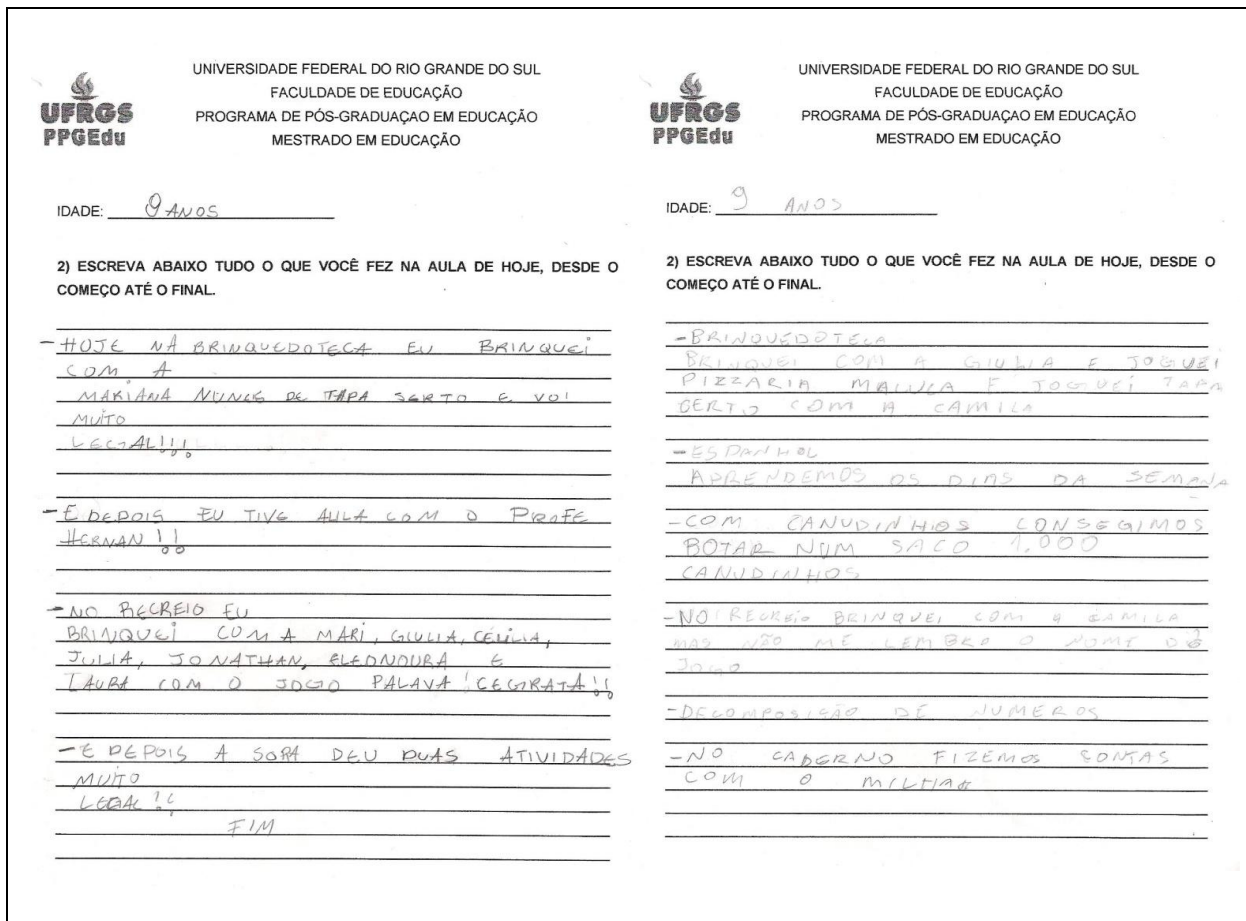 UFRGS
PPGEdu
UNIVERSIDADE FEDERAL DO RIO GRANDE DO SUL
FACULDADE DE EDUCAÇÃO
PROGRAMA DE PÓS-GRADUAÇAO EM EDUCAÇÃO
MESTRADO EM EDUCAÇÃO
IDADE: 9 ANOS
2) ESCREVA ABAIXO TUDO O QUE VOCÊ FEZ NA AULA DE HOJE, DESDE O
COMEÇO ATÉ O FINAL.
- HOJE NA BRINQUEDOTECA EU BRINQUEI
COM A
MARIANA NUNES DE TAPA SERTO E VOI
MUITO
LEGAL!!!
- E DEPOIS EU TIVE AULA COM O PROFE
HERNAN!!
- NO RECREIO EU
BRINQUEI COM A MARI, GIULIA, CECILIA,
JULIA, JONATHAN, ELEONOURA E
LAURA COM O JOGO PALAVA! CEGIRATA!!
- E DEPOIS A SORA DEU DUAS ATIVIDADES
MUITO
LEGAL!!
FIM
UFRGS
PPGEdu
UNIVERSIDADE FEDERAL DO RIO GRANDE DO SUL
FACULDADE DE EDUCAÇÃO
PROGRAMA DE PÓS-GRADUAÇAO EM EDUCAÇÃO
MESTRADO EM EDUCAÇÃO
IDADE: 9 ANOS
2) ESCREVA ABAIXO TUDO O QUE VOCÊ FEZ NA AULA DE HOJE, DESDE O
COMEÇO ATÉ O FINAL.
- BRINQUEDOTECA
BRINQUEI COM A GIULIA E JOGUEI
PIZZARIA MALUCA E JOGUEI TAPA
CERTO COM A CAMILA
- ESPANHOL
APRENDEMOS OS DIAS DA SEMANA
- COM CANUDINHOS CONSEGIMOS
BOTAR NUM SACO 1.000
CANUDINHOS
- NO RECREIO BRINQUEI COM A CAMILA
MAS NÃO ME LEMBRO O NOME DO
JOGO
- DECOMPOSIÇÃO DE NUMEROS
- NO CADERNO FIZEMOS CONTAS
COM O MILHAR